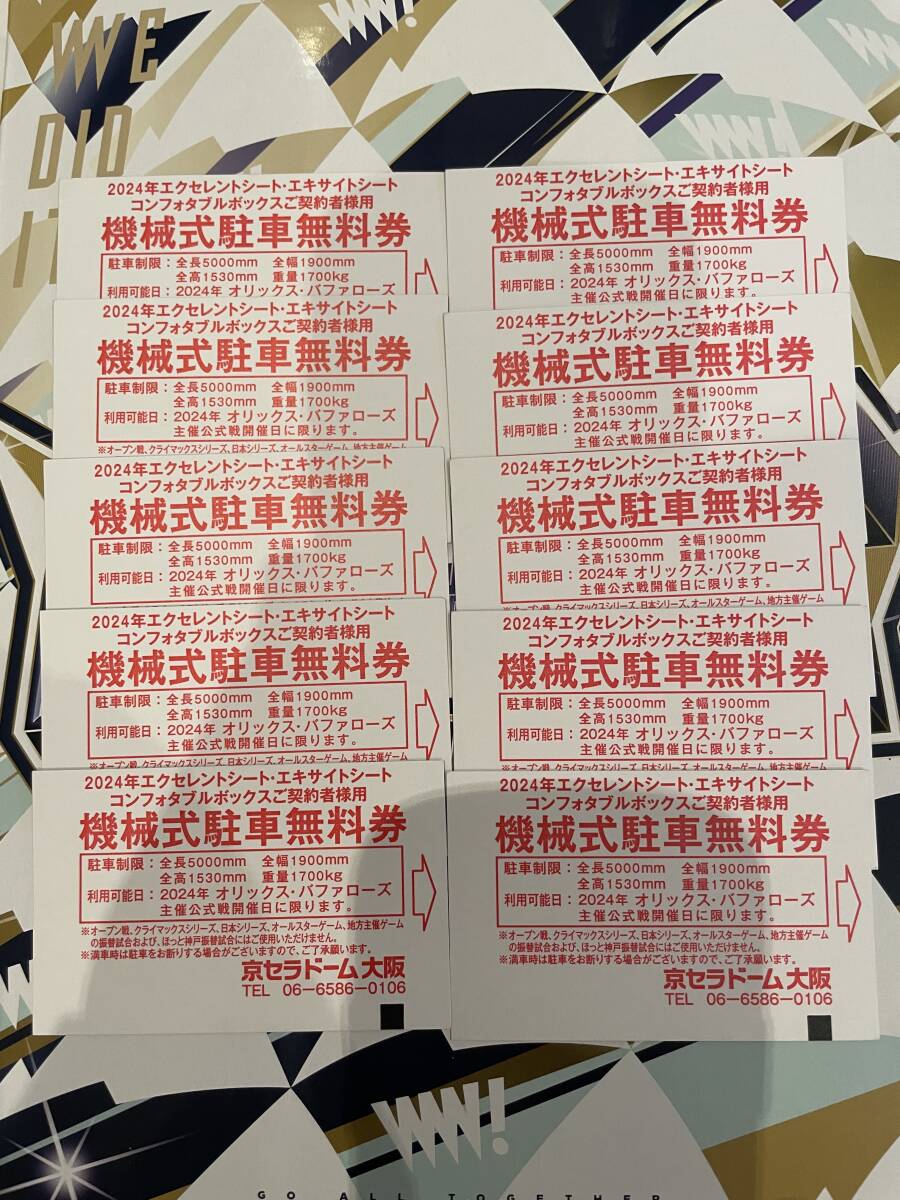 WE
DID
W!
W!
2024年エクセレントシート・エキサイトシート
コンフォタブルボックスご契約者様用
機械式駐車無料券
駐車制限：全長5000mm 全幅1900mm
全高1530mm 重量1700kg
利用可能日：2024年 オリックス・バファローズ
主催公式戦開催日に限ります。
2024年エクセレントシート・エキサイトシート
コンフォタブルボックスご契約者様用
機械式駐車無料券
駐車制限：全長5000mm 全幅1900mm
全高1530mm 重量1700kg
利用可能日：2024年 オリックス・バファローズ
主催公式戦開催日に限ります。
※オープン戦、クライマックスシリーズ、日本シリーズ、オールスターゲーム、地方主催ゲーム
2024年エクセレントシート・エキサイトシート
コンフォタブルボックスご契約者様用
機械式駐車無料券
駐車制限：全長5000mm 全幅1900mm
全高1530mm 重量1700kg
利用可能日：2024年 オリックス・バファローズ
主催公式戦開催日に限ります。
2024年エクセレントシート・エキサイトシート
コンフォタブルボックスご契約者様用
機械式駐車無料券
駐車制限：全長5000mm 全幅1900mm
全高1530mm 重量1700kg
利用可能日：2024年 オリックス・バファローズ
主催公式戦開催日に限ります。
※オープン戦、クライマックスシリーズ、日本シリーズ、オールスターゲーム、地方主催ゲーム
2024年エクセレントシート・エキサイトシート
コンフォタブルボックスご契約者様用
機械式駐車無料券
駐車制限：全長5000mm 全幅1900mm
全高1530mm 重量1700kg
利用可能日：2024年 オリックス・バファローズ
主催公式戦開催日に限ります。
※オープン戦、クライマックスシリーズ、日本シリーズ、オールスターゲーム、地方主催ゲーム
の振替試合および、ほっと神戸振替試合にはご使用いただけません。
※満車時は駐車をお断りする場合がございますので、ご了承願います。
京セラドーム大阪
TEL 06-6586-0106
2024年エクセレントシート・エキサイトシート
コンフォタブルボックスご契約者様用
機械式駐車無料券
駐車制限：全長5000mm 全幅1900mm
全高1530mm 重量1700kg
利用可能日：2024年 オリックス・バファローズ
主催公式戦開催日に限ります。
2024年エクセレントシート・エキサイトシート
コンフォタブルボックスご契約者様用
機械式駐車無料券
駐車制限：全長5000mm 全幅1900mm
全高1530mm 重量1700kg
利用可能日：2024年 オリックス・バファローズ
主催公式戦開催日に限ります。
2024年エクセレントシート・エキサイトシート
コンフォタブルボックスご契約者様用
機械式駐車無料券
駐車制限：全長5000mm 全幅1900mm
全高1530mm 重量1700kg
利用可能日：2024年 オリックス・バファローズ
主催公式戦開催日に限ります。
※オープン戦、クライマックスシリーズ、日本シリーズ、オールスターゲーム、地方主催ゲーム
2024年エクセレントシート・エキサイトシート
コンフォタブルボックスご契約者様用
機械式駐車無料券
駐車制限：全長5000mm 全幅1900mm
全高1530mm 重量1700kg
利用可能日：2024年 オリックス・バファローズ
主催公式戦開催日に限ります。
※オープン戦、クライマックスシリーズ、日本シリーズ、オールスターゲーム、地方主催ゲーム
2024年エクセレントシート・エキサイトシート
コンフォタブルボックスご契約者様用
機械式駐車無料券
駐車制限：全長5000mm 全幅1900mm
全高1530mm 重量1700kg
利用可能日：2024年 オリックス・バファローズ
主催公式戦開催日に限ります。
※オープン戦、クライマックスシリーズ、日本シリーズ、オールスターゲーム、地方主催ゲーム
の振替試合および、ほっと神戸振替試合にはご使用いただけません。
※満車時は駐車をお断りする場合がございますので、ご了承願います。
京セラドーム大阪
TEL 06-6586-0106
W!
GO ALL TOGETHER